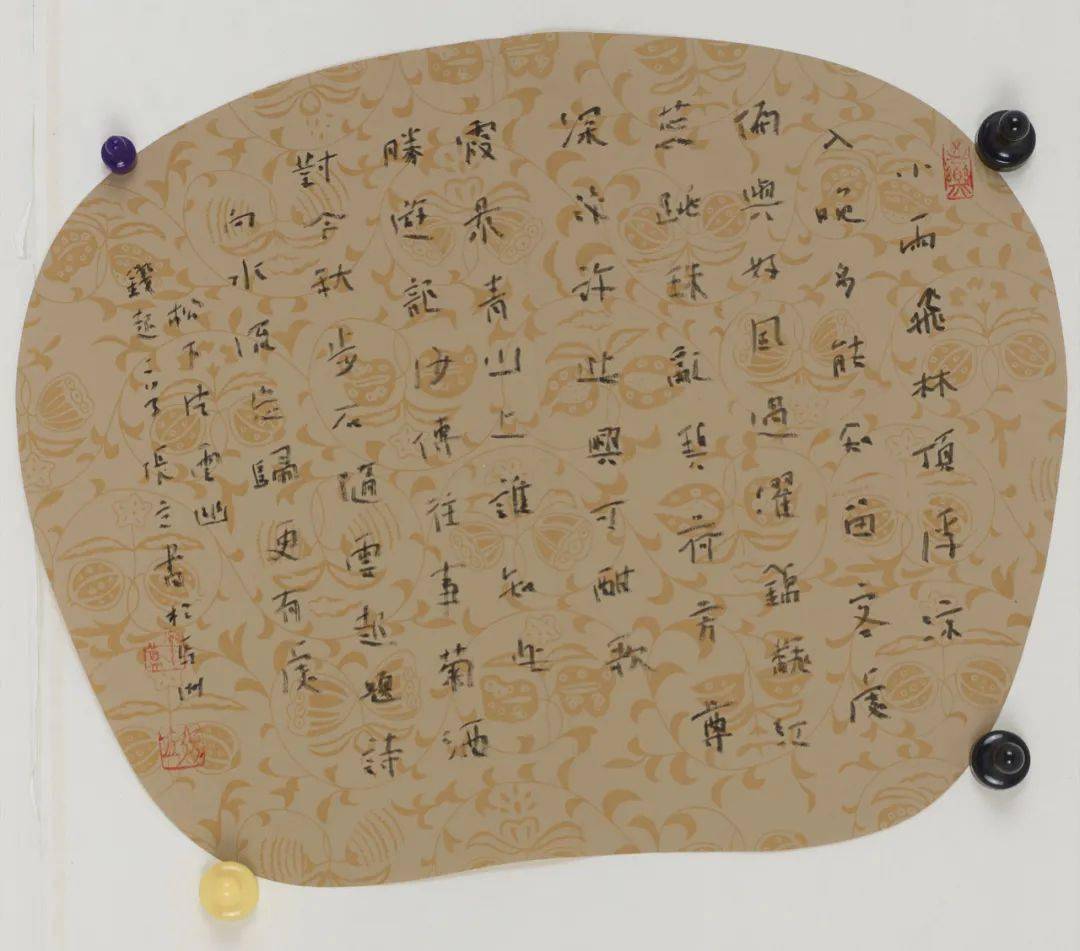 小雨飛林頂浮涼
入晚多能知留客處
偏與好風過濯錦翻紅
蕊跳珠亂碧荷芳尊
深幾許此興可酣歌
霞景青山上誰知此
勝遊記傳往事菊酒
對今秋步石隨雲起題詩
向水流忘歸更有處
松下片雲幽
錢起二首張立書於洲